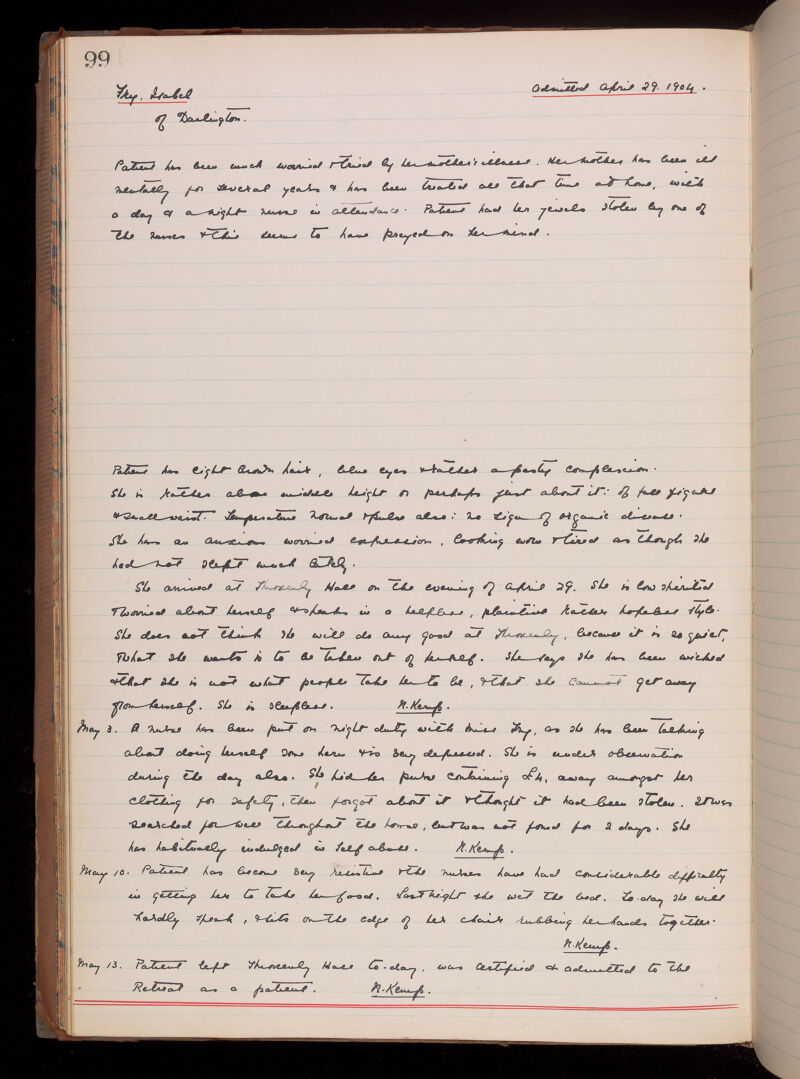 99
Fry. Isabel
Admitted April 29. 1904.
of Darlington.
Patient has been much worried & tried by her mother's illness. Her mother has been ill
mentally for several years & has been treated all that time at home, with
a day & a night nurse in attendance. Patient had her jewels stolen by one of
the nurses & this seems to have preyed on her mind.
Patient has light brown hair, blue eyes & rather a pasty complexion.
She is rather above middle height or perhaps just about it: of full figure
& small waist. Temperature normal & pulse also: no sign of organic disease.
She has an anxious worried expression, looking worn & tired as though she
had not slept much lately.
She arrived at Throxenby Hall on the evening of April 29. She is low spirited
& worried about herself & speaks in a helpless, plaintive rather hopeless style.
She does not think she will do any good at Throxenby, because it is so quiet,
& what she wants is to be taken out of herself. She says she has been wicked
& that she is not what people take her to be, & that she cannot get away
from herself. She is sleepless. N. Kemp.
May 3. A nurse has been put on night duty with Miss Fry, as she has been talking
about doing herself some harm & is very depressed. She is under observation
during the day also. She hid her purse containing £4, away amongst her
clothing for safety, then forgot about it & thought it had been stolen. It was
searched for well throughout the house, but was not found for 2 days. She
has habitually indulged in self abuse. N. Kemp.
May 10. Patient has become very resistive & the nurses have had considerable difficulty
in getting her to take her food. Last night she wet the bed. To-day she will
hardly speak, & sits on the edge of her chair rubbing her hands together.
N. Kemp.
May 13. Patient left Throxenby Hall to-day, was certified & admitted to the
Retreat as a patient. N. Kemp.